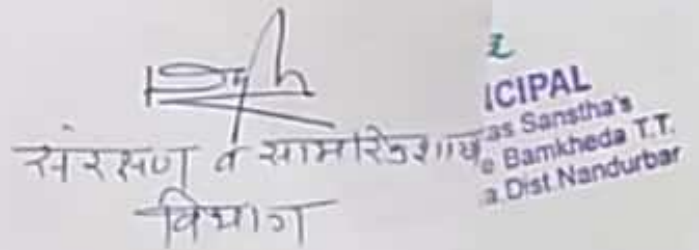 संरक्षण व सामरिकशास्त्र
विभाग
ICIPAL
as Sanstha's
e Bamkheda T.T.
a Dist Nandurbar